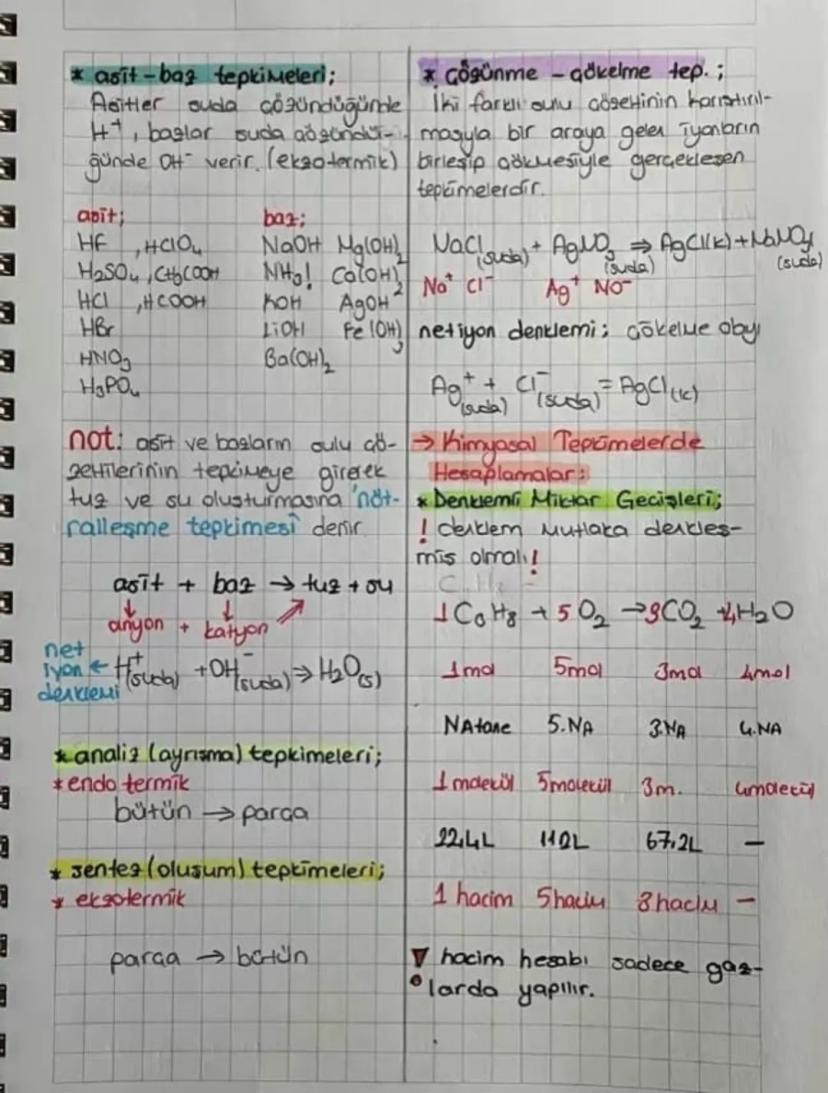 * asit-baz tepkimeleri;
Asitler suda çözündüğünde
H⁺, bazlar suda çözündü-
ğünde OH⁻ verir. (ekzotermik)
asit;
HF , HClO₄
H₂SO₄ , CH₃COOH
HCl , HCOOH
HBr
HNO₃
H₃PO₄
baz;
NaOH Mg(OH)₂
NH₃! Ca(OH)₂
KOH AgOH
LiOH Fe(OH)₃
Ba(OH)₂
not: asit ve bazların sulu çö-
zeltilerinin tepkimeye girerek
tuz ve su oluşturmasına 'nöt-
ralleşme tepkimesi denir.
asit + baz → tuz + su
anyon + katyon
net
iyon ← H⁺(suda) + OH⁻(suda) → H₂O(s)
denklemi
* analiz (ayrışma) tepkimeleri;
* endotermik
bütün → parça
* sentez (oluşum) tepkimeleri;
* ekzotermik
parça → bütün
* Çözünme - çökelme tep. ;
İki farklı sulu çözeltinin karıştırıl-
masıyla bir araya gelen iyonların
birleşip çökmesiyle gerçekleşen
tepkimelerdir.
NaCl(suda) + AgNO₃(suda) ⇒ AgCl(k) + NaNO₃(suda)
Na⁺ Cl⁻ Ag⁺ NO⁻
net iyon denklemi; çökelme olayı
Ag⁺(suda) + Cl⁻(suda) = AgCl(k)
→ Kimyasal Tepkimelerde
Hesaplamalar:
* Denklemli Miktar Geçişleri;
! denklem mutlaka denkleş-
miş olmalı!
1C₃H₈ + 5O₂ → 3CO₂ + 4H₂O
1mol 5mol 3mol 4mol
NA tane 5.NA 3.NA 4.NA
1 molekül 5molekül 3m. 4molekül
22,4L 112L 67,2L —
1 hacim 5hacim 3hacim —
! hacim hesabı sadece gaz-
larda yapılır.